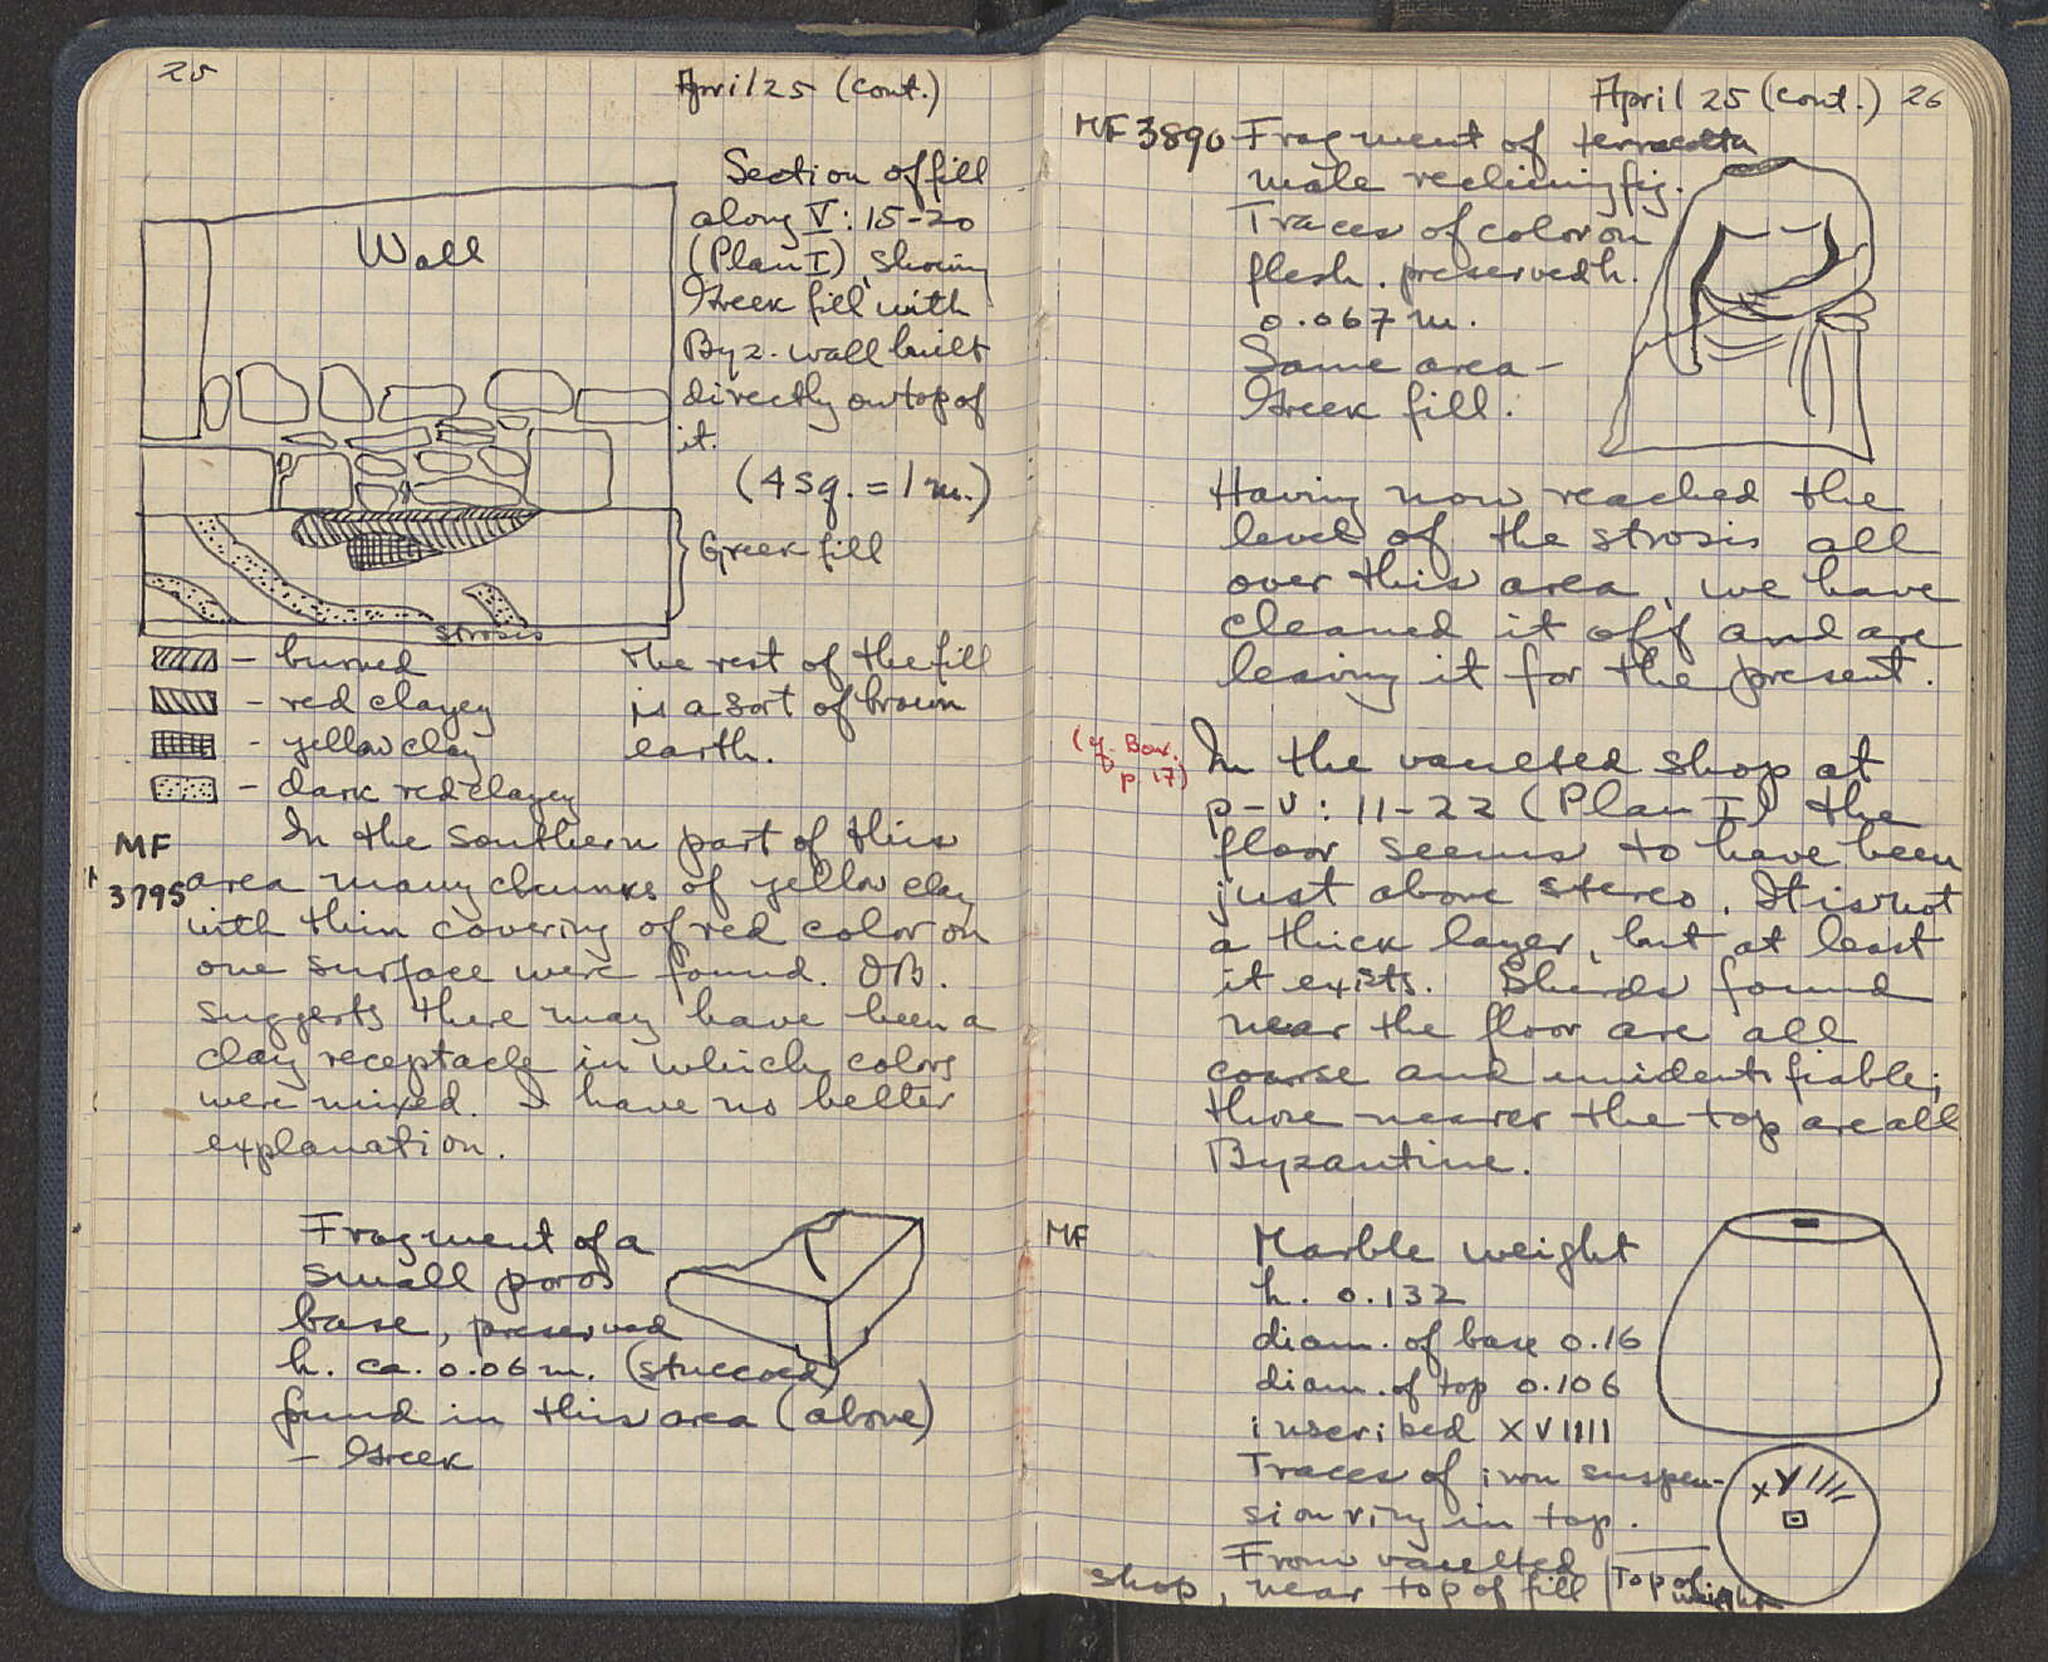 25
April 25 (cont.)
Section of fill
along V: 15-20
(Plan I), showing
Greek fill with
Byz. wall built
directly on top of
it.
(4 sq. = 1 m.)
Wall
Greek fill
strosis
- burned
- red clayey
- yellow clay
- dark red clayey
the rest of the fill
is a sort of brown
earth.
MF
3795
In the southern part of this
area many chunks of yellow clay
with thin covering of red color on
one surface were found. OB.
suggests there may have been a
clay receptacle in which colors
were mixed. I have no better
explanation.
Fragment of a
small poros
base, preserved
h. ca. 0.06 m. (stuccoed)
found in this area (above)
- Greek
April 25 (cont.) 26
MF 3890 Fragment of terracotta
male reclining fig.
Traces of color on
flesh. preserved h.
0.067 m.
Same area -
Greek fill.
Having now reached the
level of the strosis all
over this area, we have
cleaned it off and are
leaving it for the present.
(cf. Bow.
p. 17)
In the vaulted shop at
p-v: 11-22 (Plan I) the
floor seems to have been
just above stereo. It is not
a thick layer, but at least
it exists. Sherds found
near the floor are all
coarse and unidentifiable;
those nearer the top are all
Byzantine.
MF
Marble weight
h. 0.132
diam. of base 0.16
diam. of top 0.106
inscribed XVIIII
Traces of iron suspen-
sion ring in top.
From vaulted
shop, near top of fill
XVIIII
Top of
weight